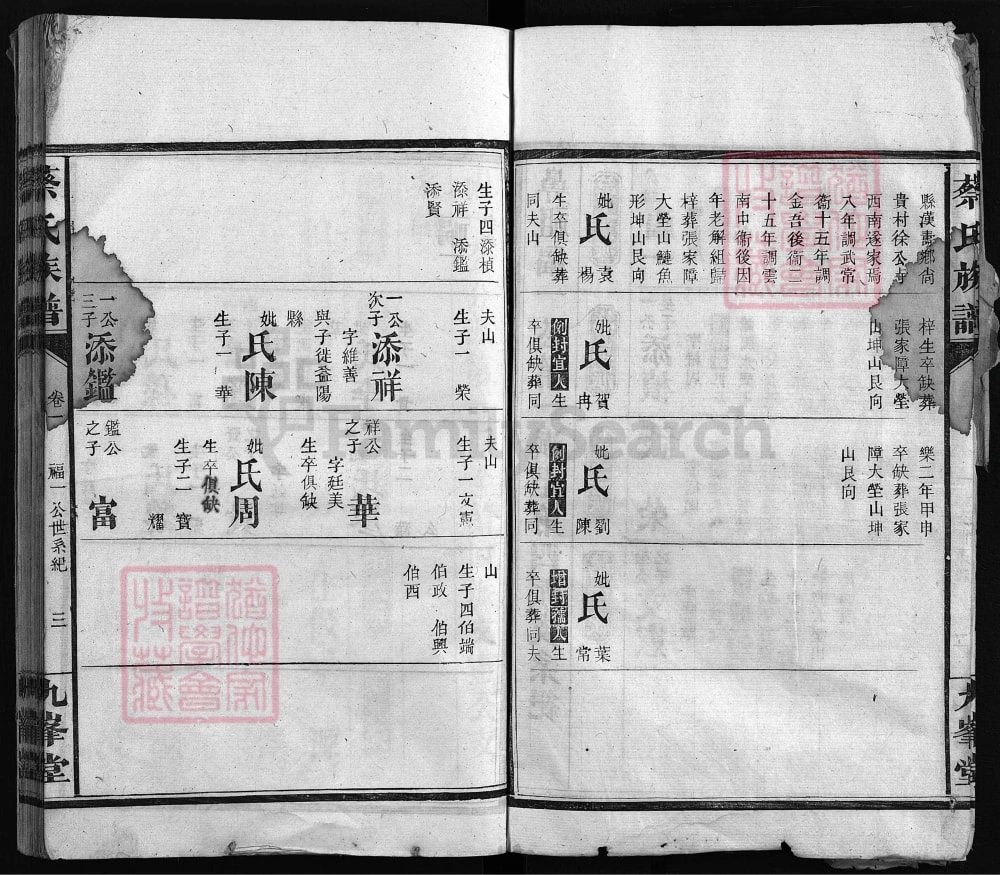 蔡氏族譜
九峯堂
縣漢壽鄉尙
貴村徐公寺
西南遂家焉
八年調武常
衞十五年調
金吾後衞二
十五年調雲
南中衞後因
年老解組歸
梓葬張家障
大塋山鰱魚
形坤山艮向
妣氏袁楊
生卒俱缺葬
同夫山
梓生卒缺葬
張家障大塋
山坤山艮向
妣氏賀冉
例封宜人生
卒俱缺葬同
樂二年甲申
卒缺葬張家
障大塋山坤
山艮向
妣氏劉陳
例封宜人生
卒俱缺葬同
妣氏葉常
增封孺人生
卒俱葬同夫
生子四添楨
添祥 添鑑
添賢
夫山
生子一 榮
一公次子添祥
字維善
與子徙益陽
縣
妣氏陳
生子一 華
一公三子添鑑
夫山
生子一文憲
祥公之子華
字廷美
生卒俱缺
妣氏周
生卒俱缺
生子二 寶
耀
鑑公之子富
山
生子四伯端
伯政 伯興
伯酉
蔡氏族譜
卷二
福一公世系紀
三
九峯堂
FamilySearch